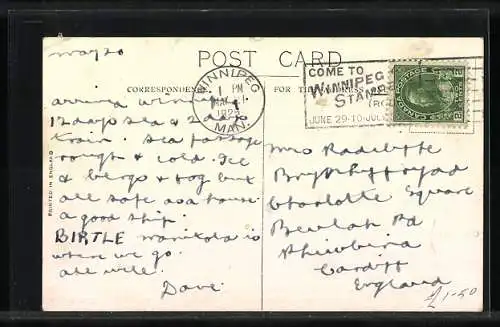 POST CARD
CORRESPONDEN
FOR
PRINTED IN ENGLAND
WINNIPEG
1
MAN.
COME TO
WINNIPEG
STAMP
JUNE 29-10-JULY
CANADA POSTAGE
2
2
May 20
arriva
12 days sea & 2 days
train sea passage
rough & cold. Ice
& bergs & fog but
all safe as a house
a good ship.
BIRTLE Manitoba is
where we go.
all well.
Dave.
Mrs Radcliffe
Charlotte Square
Beulah Rd
Rhiwbina
Cardiff
England
£1-50